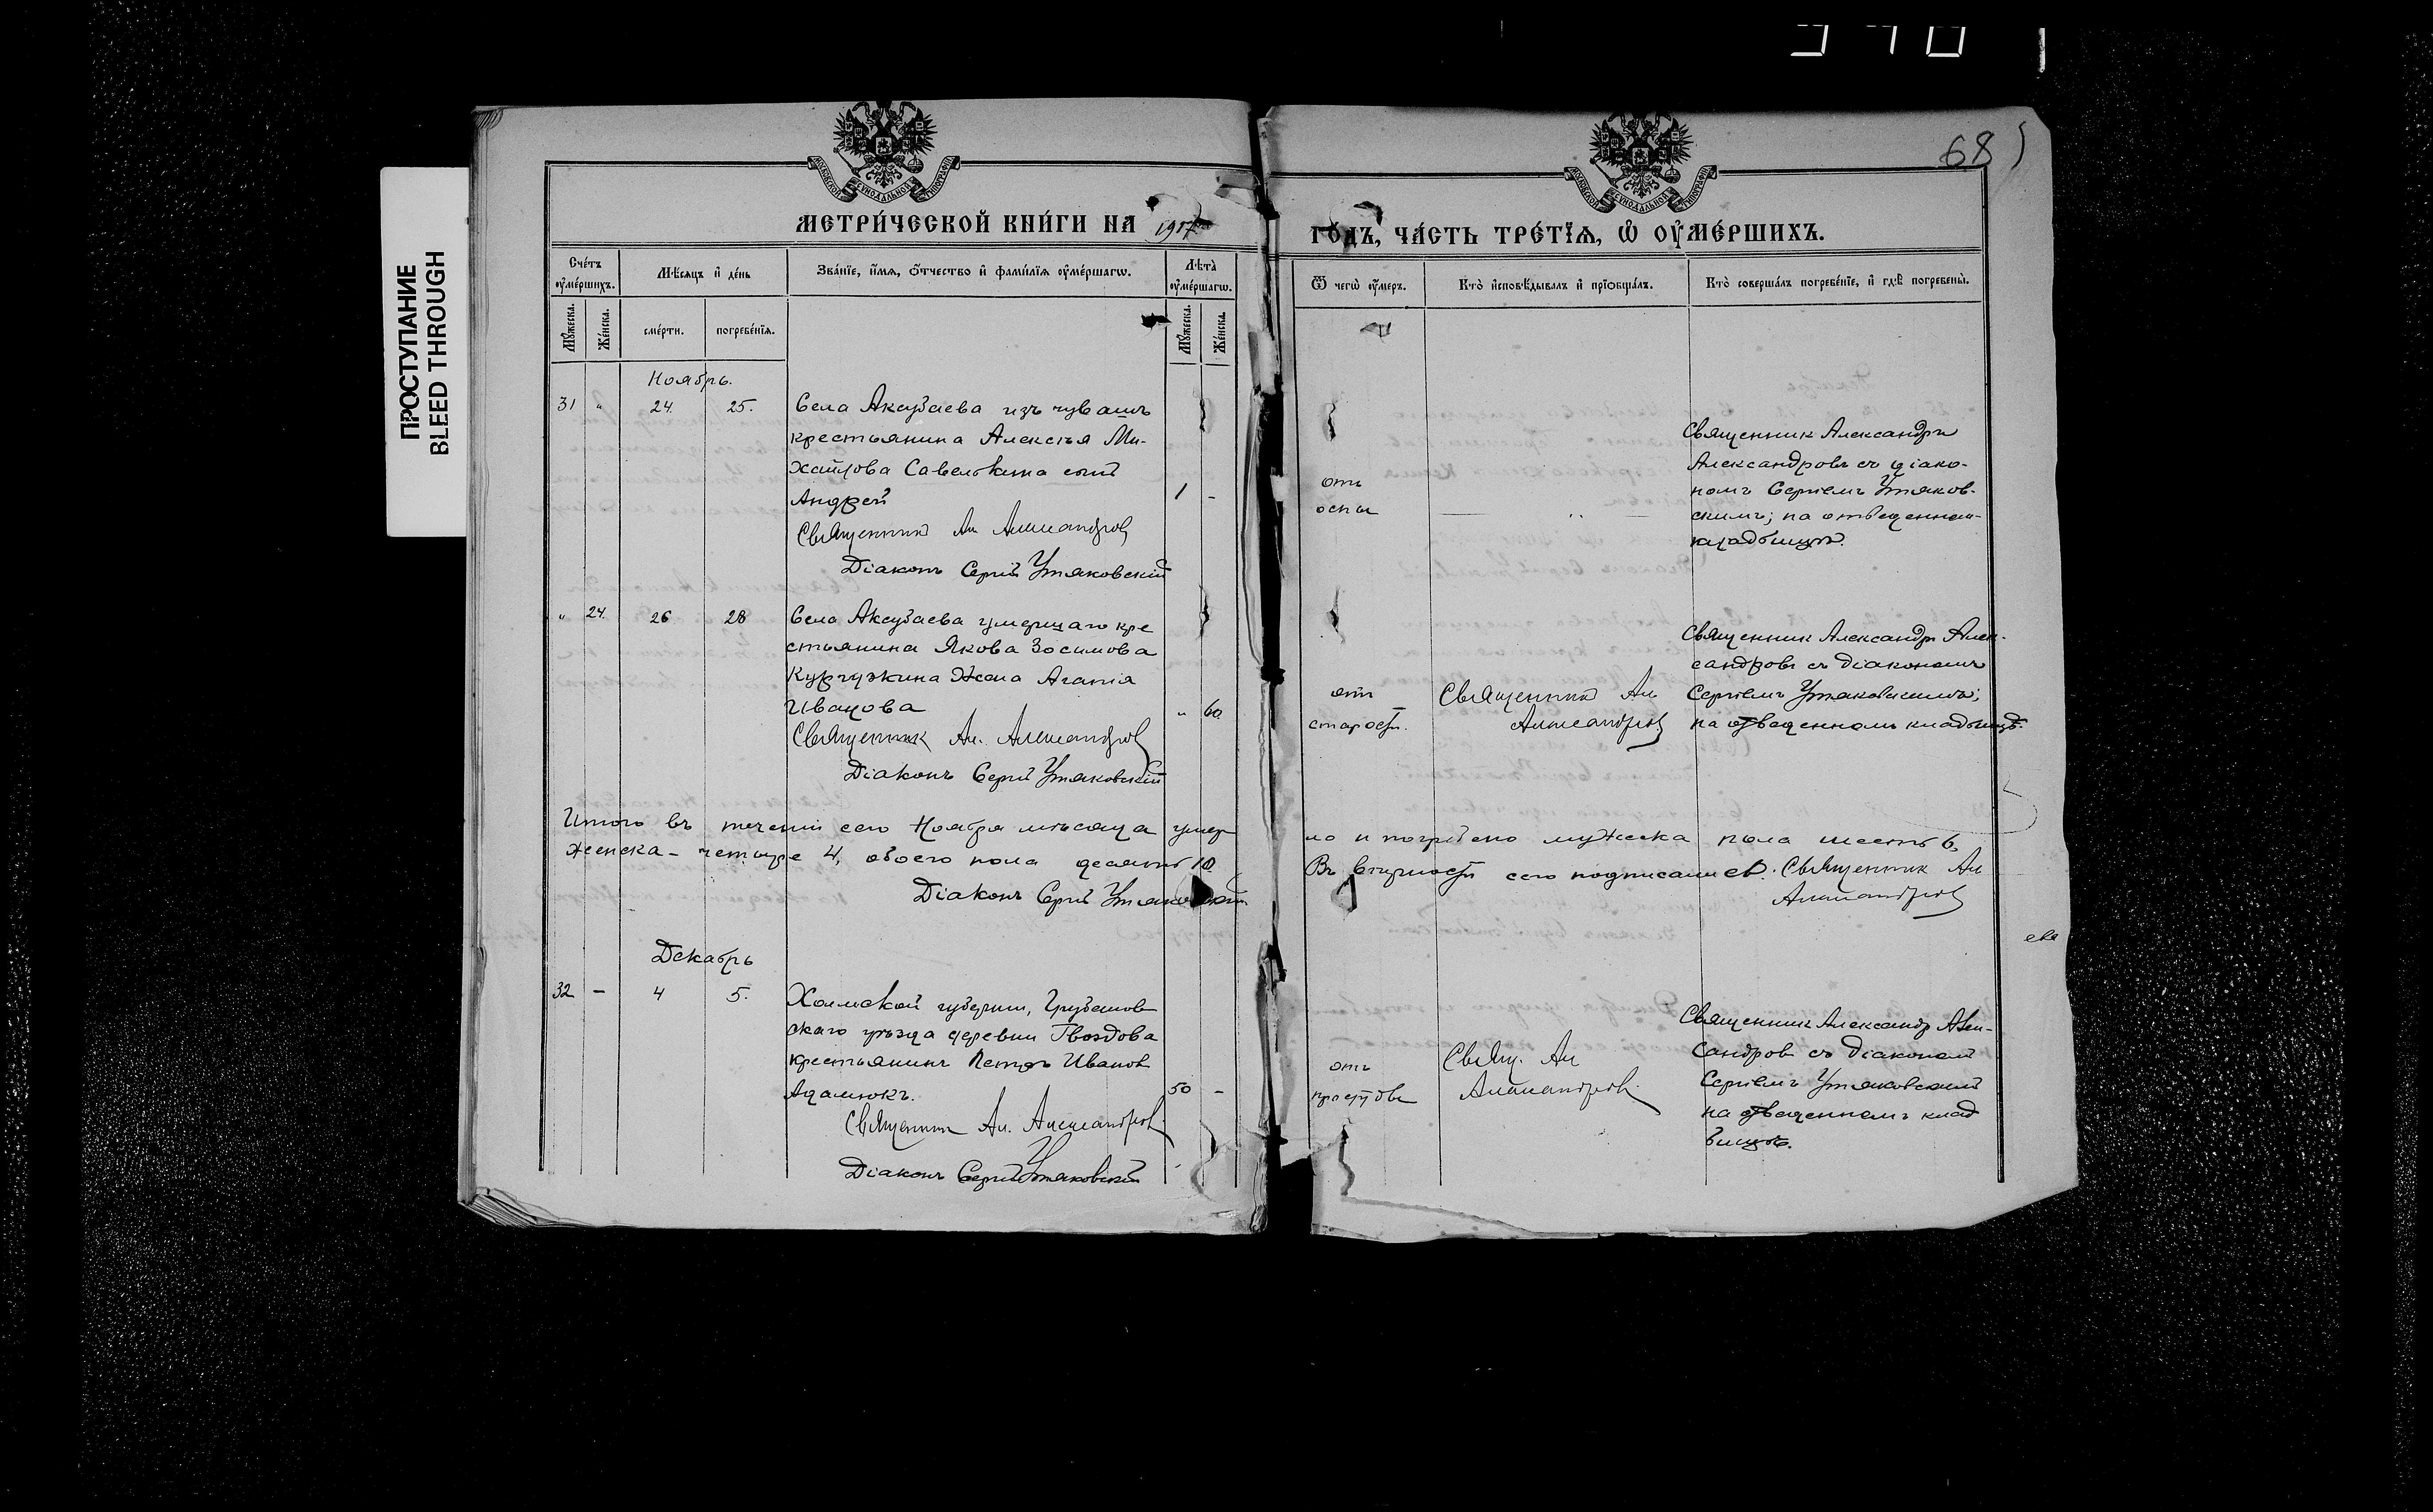 ПРОСТУПАНИЕ
BLEED THROUGH
68
МЕТРИ́ЧЕСКОЙ КНИ́ГИ НА 1917
ГО́ДЪ, ЧА́СТЬ ТРЕ́ТІѦ, Ѡ ОУМЕ́РШИХЪ.
Сче́тъ оуме́ршихъ.
Мѣ́сяцъ и де́нь
Зва́нїе, и́мѧ, о́тчество и фами́лїѧ оуме́ршагѡ.
Лѣта̀ оуме́ршагѡ.
Ѿ чегѡ̀ оу́меръ.
Кто̀ исповѣ́дывалъ и прїобща́лъ.
Кто̀ соверша́лъ погребе́нїе, и гдѣ̀ погребены̀.
Мꙋ́жеска.
Же́нска.
сме́рти.
погребе́нїѧ.
Мꙋ́жеска.
Же́нска.
Ноябрь.
31 " 24. 25.
Села Аксубаева изъ чувашъ
крестьянина Алексѣя Ми-
хайлова Савелькина сынъ
Андрей
1 -
Священникъ Ал. Александровъ
Діаконъ Сергій Утяковскій
отъ
оспы
Священникъ Александръ
Александровъ съ діако-
номъ Сергіемъ Утяков-
скимъ; на отведенномъ
кладбищѣ.
" 24. 26 28
Села Аксубаева умершаго кре
стьянина Якова Зосимова
Кургузкина жена Агапія
Иванова
" 60.
Священник Ал. Александровъ
Діаконъ Сергій Утяковскій
отъ
старости.
Священникъ Ал.
Александровъ
Священникъ Александръ Алек-
сандровъ съ діакономъ
Сергіемъ Утяковскимъ;
на отведенномъ кладбищѣ.
Итого въ теченіи сего Ноября мѣсяца умер
ло и погребено мужеска пола шесть 6,
женска - четыре 4, обоего пола десять 10.
Въ вѣрности сего подписались. Священник Ал.
Александровъ
Діаконъ Сергій Утяковскій
Декабрь
32 - 4 5.
Холмской губерніи, Грубешов
скаго уѣзда деревни Гвоздова
крестьянинъ Петръ Иванов
Адамюкъ.
50 -
Священник Ал. Александровъ
Діаконъ Сергій Утяковскій
отъ
простуды
Свящ. Ал.
Александровъ
Священник Александр Алек-
сандров съ діакономъ
Сергіемъ Утяковскимъ
на отведенномъ клад
бищѣ.